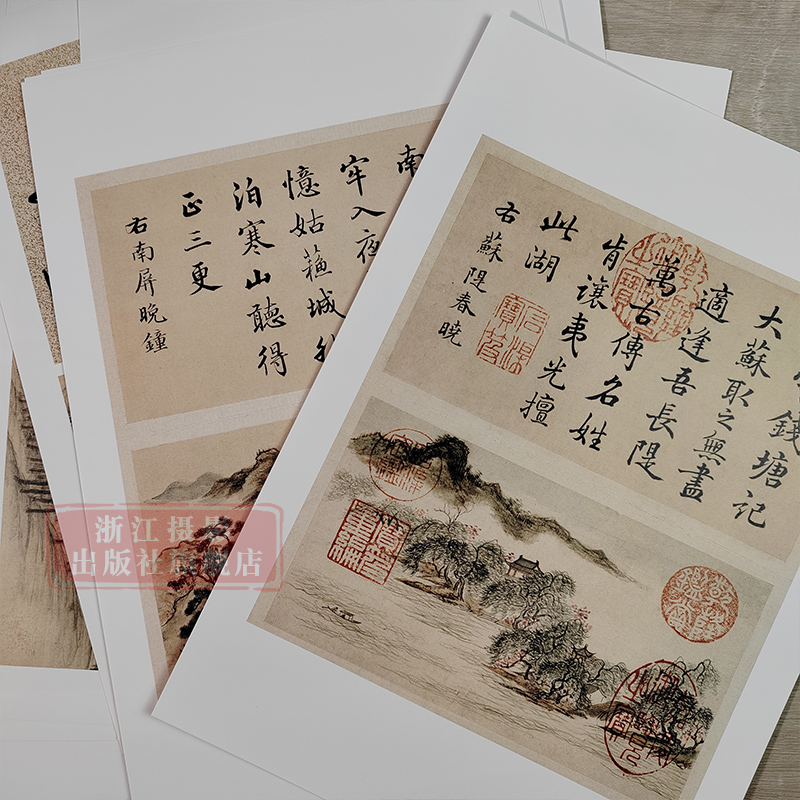 錢塘記
大蘇取之無盡
適逢吾長隄
萬古傳名姓
肯讓夷光擅
此湖
右蘇隄春曉
石渠寶笈
南
牢入夜
憶姑蘓城
泊寒山聽得
正三更
右南屏晚鐘
浙江摄影
出版社旗舰店